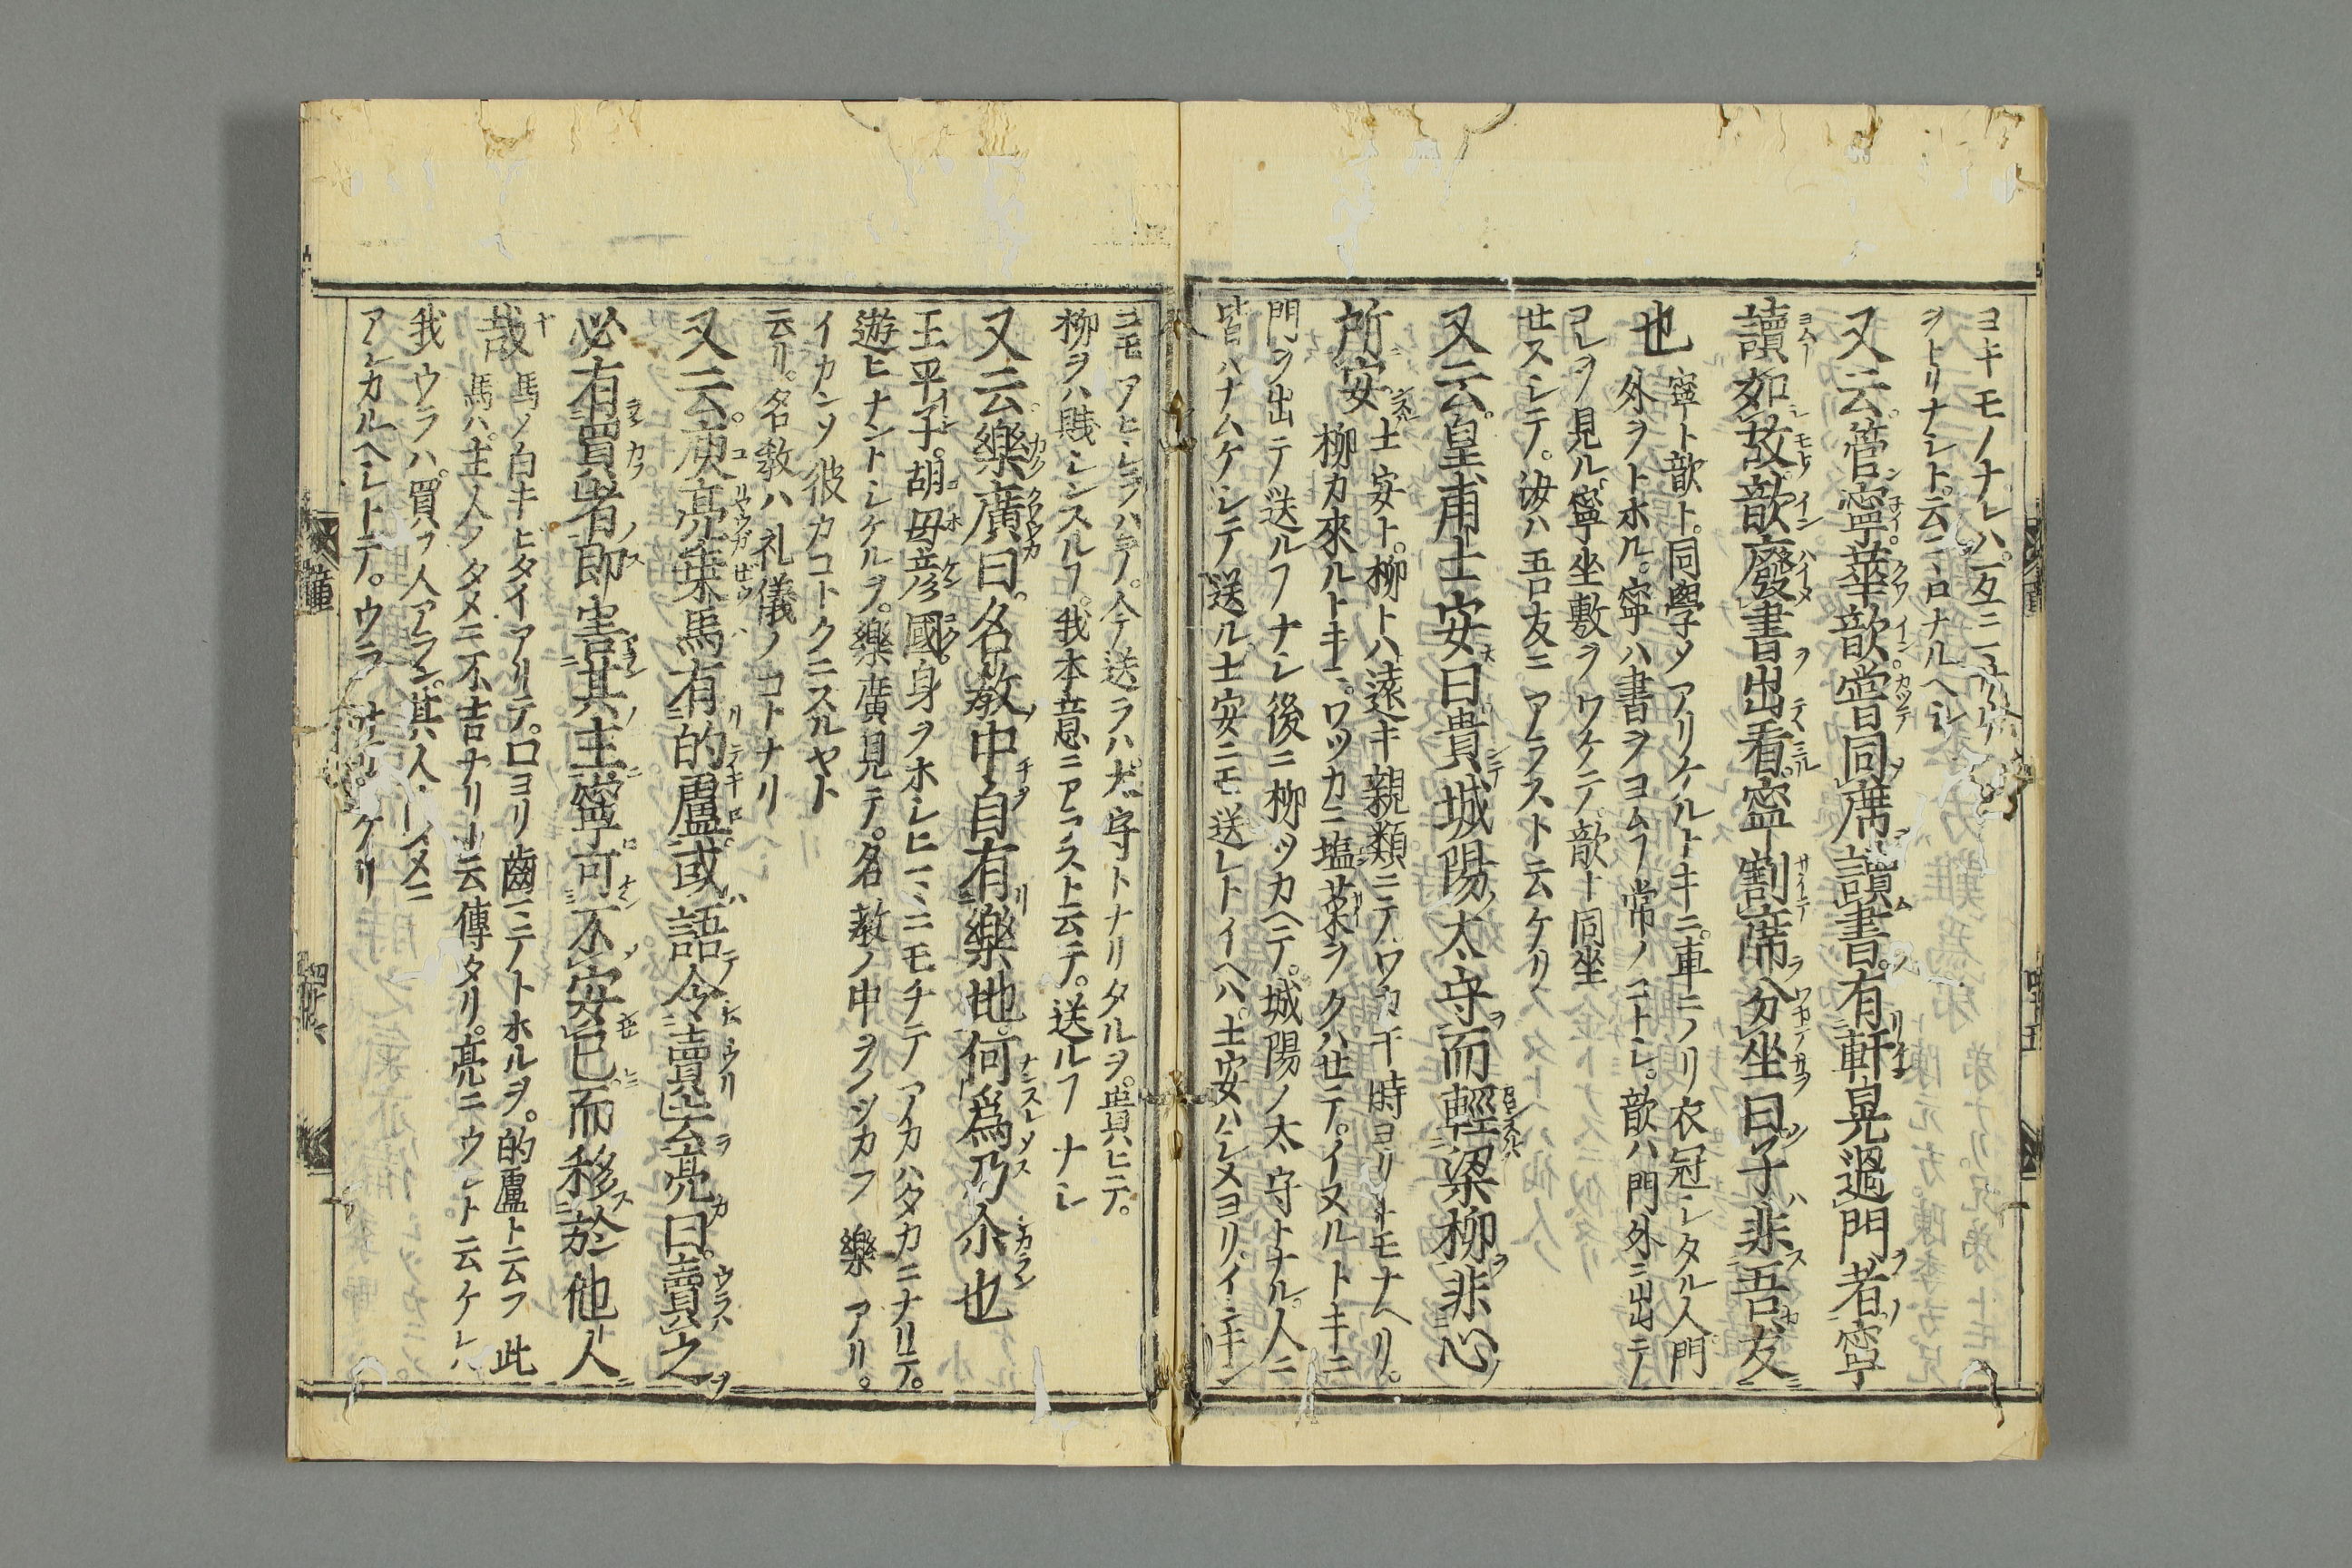 ヨキモノナレハ。互ニ
ヲトリナレト。云ニヽロナルヘシ
又云。管寧。華歆。嘗同席讀書。有軒冕過門者。寧
讀如故歆廢書出看。寧割席分坐曰子非吾友
也 寧ト歆ト。同學メアリケルトキニ。車ニノリ衣冠シタル人門
外ヲトホル。寧ハ書ヲヨムヿ常ノコトシ。歆ハ門外ニ出テ
コレヲ見ル。寧坐敷ヲワケテ。歆ト同坐
セスシテ。汝ハ吾友ニアラスト云ケリ
又云。皇甫士安曰貴城陽太守而輕梁柳非心
所安 士安ト。柳トハ遠キ親類ニテ。ワカキ時ヨリトモナヘリ。
柳カ來ルトキニ。ワツカニ塩菜ヲクハセテ。イヌルトキニ
門ヲ出テ送ルヿナシ後ニ柳ツカヘテ。城陽ノ太守トナル。人ニ
皆ハナムケシテ送ル士安ニモ送レトイヘハ。士安ハシメヨリ。イニキ
ヨモアヒシラハテ。今送ラハ。太守トナリタルヲ。貴ヒテ。
柳ヲハ賤シンスルヿ。我本意ニアラスト云テ。送ルヿナシ
又云。樂廣曰。名教中自有樂地。何爲乃尒也
王平子。胡毋彦國。身ヲホシヒマヽニモチテアカハタカニナリテ。
遊ヒナントシケルヲ。樂廣見テ。名教ノ中ヲノツカラ樂アリ。
イカンソ彼カコトクニスルヤト
云リ。名教ハ礼儀ノコトナリ
又云。庾亮乗馬有的盧。或語令賣去亮曰。賣之
必有買者即害其主寧可不安己而移於他人
哉 馬ノ白キヒタイアリテ。口ヨリ齒ニテトホルヲ。的盧ト云フ此
馬ハ。主人ノタメニ不吉ナリト云傳タリ。亮ニウレト云ケレハ
我ウラハ。買フ人アラン。其人ノタメニ
アシカルヘシトテ。ウラサリケリ